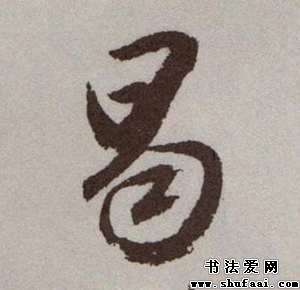 曷
书法爱网
www.shufaai.com